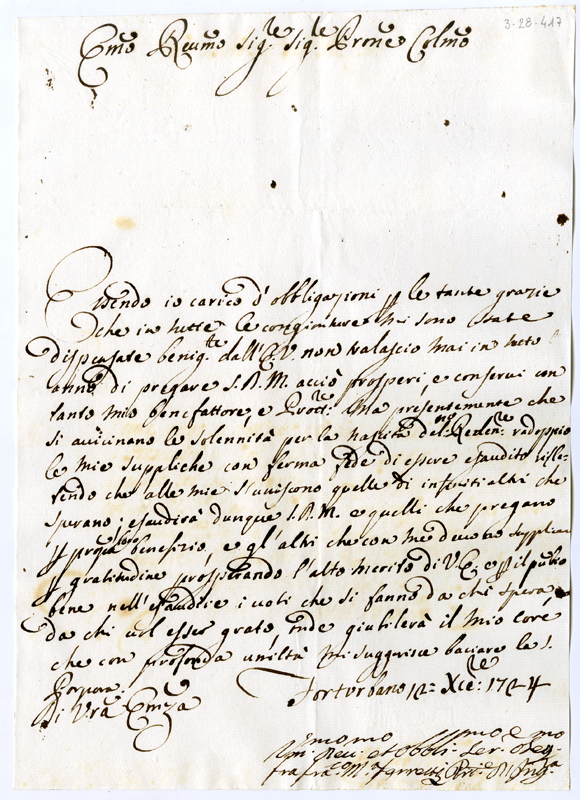 3-28-417
Emo Reumo Sig.re Sig.re Prone Colmo
Essendo io carico d'obbligazioni p le tante grazie
che in tutte le congiunture mi sono state
dispensate benig.te dall'E.V. non tralascio mai in tutto l'
anno di pregare S.D.M. acciò prosperi, e conservi con
tanto mio benefattore, e Prott.re Ma presentemente che
si avicinano le solennità per la nascita del Reden.re radoppio
le mie suppliche con ferma fede di essere esaudito rifle-
tendo che alle mie s'uniscono quelle di infiniti altri che
sperano; esaudirà dunque S.D.M. e quelli che pregano
p proprio loro benefizio, e gl'altri che con me devono supplicar
p gratitudine prosperando l'alto merito di V.E. e p il publico
bene nell'esaudire i voti che si fanno da chi spera, e
da chi vol esser grato, onde giubilerà il mio core
che con profonda umiltà mi suggerisce baciare la S.
Porpora.
Di Vra Emza
Forturbano 12 Xbre 1724
Umo Deu. et Obbli. Ser.
fra